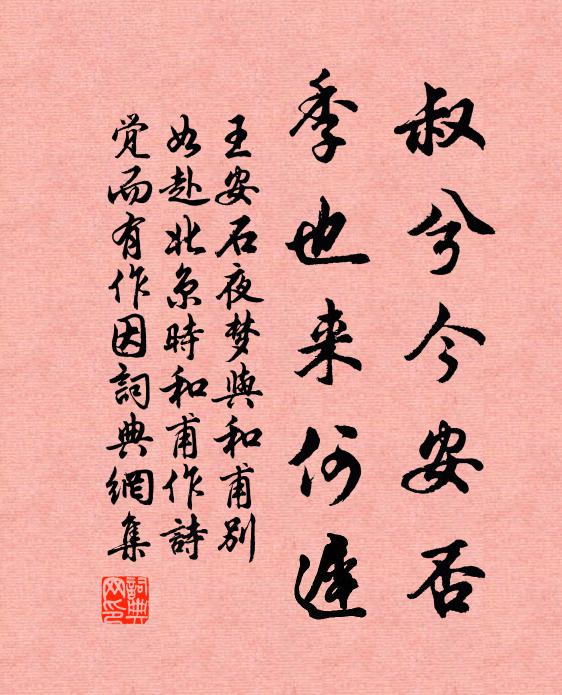 叔兮今安否
季也来何遲
王安石夜梦與和甫别
如赴北京時和甫作詩
觉而有作因詞典網集
詞典網印